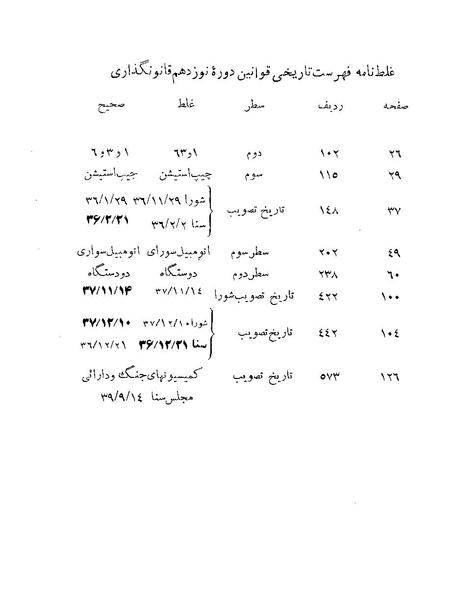 غلط‌نامه فهرست تاریخی قوانین دورهٔ نوزدهم قانونگذاری
صفحه ردیف سطر غلط صحیح
۲۶ ۱۰۲ دوم ۱و۶۳ ۱و۳و۶
۲۹ ۱۱۵ سوم چیپ‌استیشن جیب‌استیشن
۳۷ ۱۴۸ تاریخ تصویب شورا ۳۶/۱۱/۲۹ ۳۶/۱/۲۹
سنا ۳۶/۲/۲ ۳۶/۲/۲۱
۴۹ ۲۰۲ سطر سوم اتومبیل سورای اتومبیل سواری
۶۰ ۲۳۸ سطر دوم دوستگاه دودستگاه
۱۰۰ ۴۲۲ تاریخ تصویب شورا ۳۷/۱۱/۱۴ ۳۷/۱۱/۱۴
۱۰۴ ۴۴۲ تاریخ تصویب شورا ۳۷/۱۲/۱۰ ۳۷/۱۲/۱۰
سنا ۳۶/۱۲/۲۱ ۳۶/۱۲/۲۱
۱۲۶ ۵۷۳ تاریخ تصویب کمیسیونهای جنگ و دارائی
مجلس سنا ۳۹/۹/۱۴